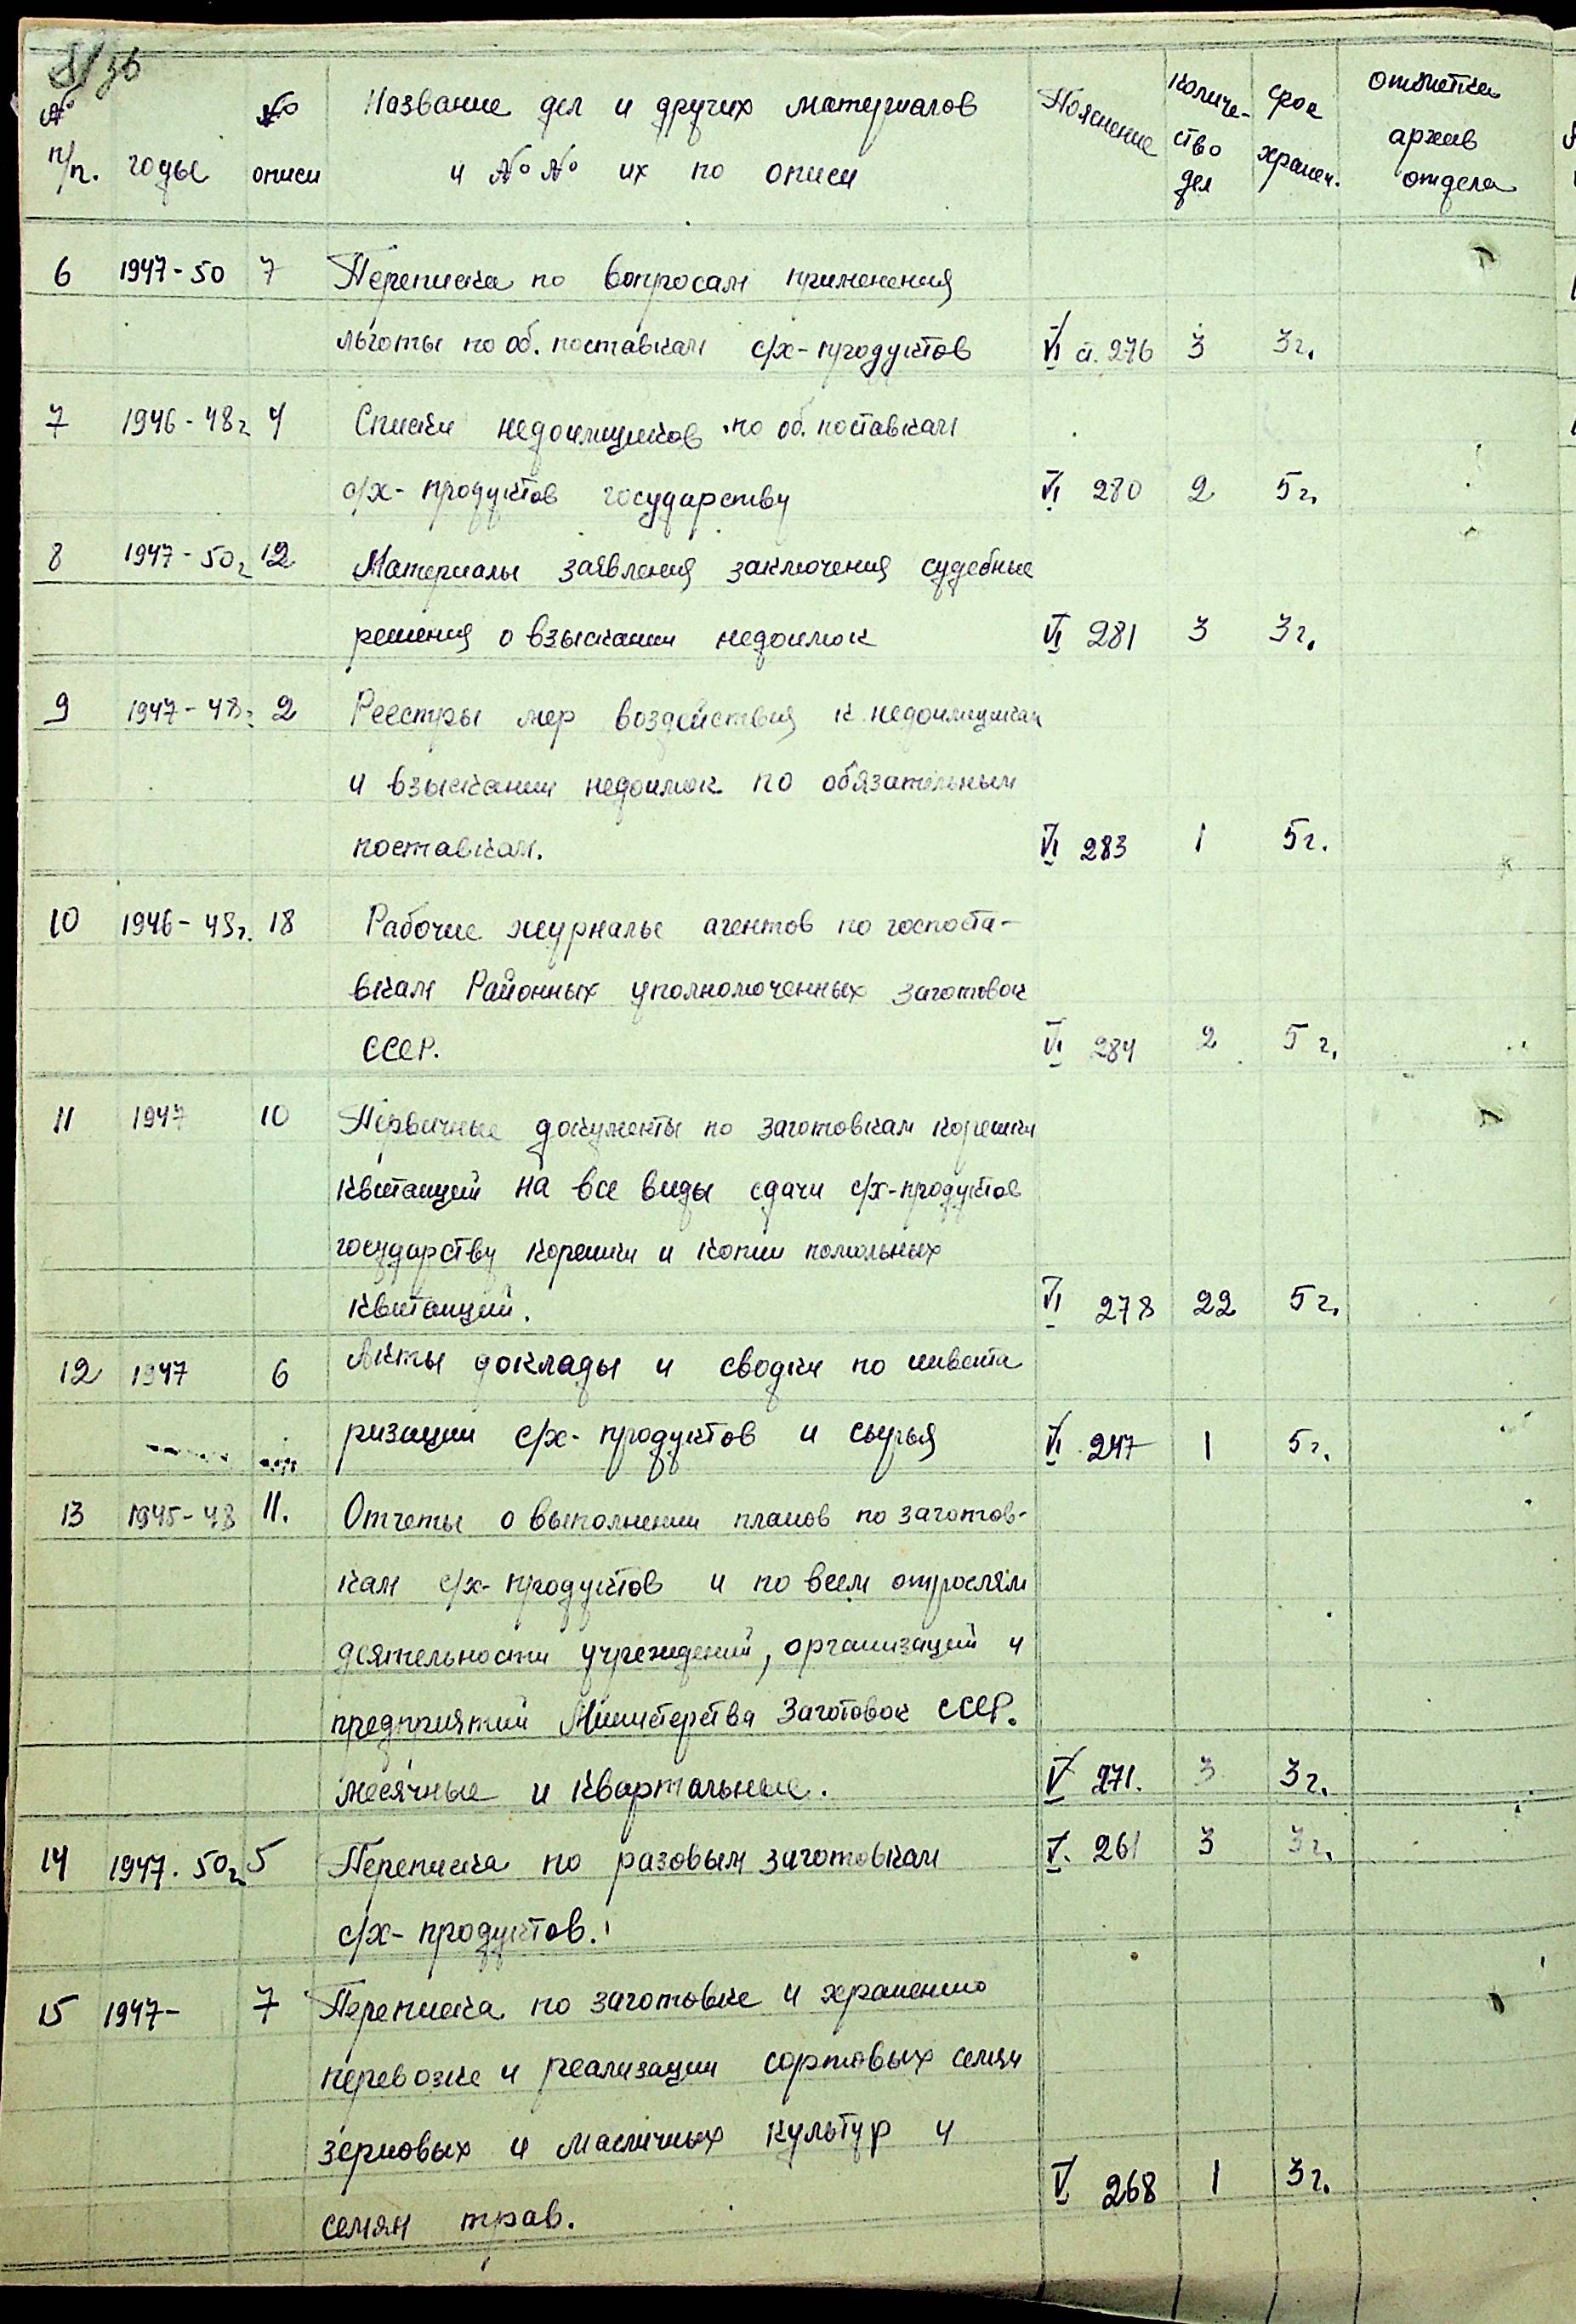 8/36
№ п/п. годы № описи Название дел и других материалов и №№ их по описи Пояснение Количе-ство дел срок хранен. отметка архив отдела
6 1947-50 7 Переписка по вопросам применения
льготы по об. поставкам с/х-продуктов VI ст. 276 3 3г.
7 1946-48г 4 Списки недоимщиков по об. поставкам
с/х-продуктов государству VI 280 2 5г.
8 1947-50г 12 Материалы заявления заключения судебные
решения о взыскании недоимок VI 281 3 3г.
9 1947-48г 2 Реестры мер воздействия к недоимщикам
и взыскании недоимок по обязательным
поставкам. VI 283 1 5г.
10 1946-48г. 18 Рабочие журналы агентов по госпоста-
вкам Районных уполномоченных заготовок
СССР. VI 284 2 5г.
11 1947 10 Первичные документы по заготовкам корешки
квитанций на все виды сдачи с/х-продуктов
государству корешки и копии помольных
квитанций. VI 278 22 5г.
12 1947 6 Акты доклады и сводки по инвента
ризации с/х-продуктов и сырья VI 247 1 5г.
13 1945-48 11. Отчеты о выполнении планов по заготов-
кам с/х-продуктов и по всем отраслям
деятельности учреждений, организаций и
предприятий Министерства Заготовок СССР.
месячные и квартальные. V 271. 3 3г.
14 1947.50г 5 Переписка по разовым заготовкам V. 261 3 3г.
с/х-продуктов.
15 1947- 7 Переписка по заготовке и хранению
перевозке и реализации сортовых семян
зерновых и масличных культур и
семян трав. V 268 1 3г.